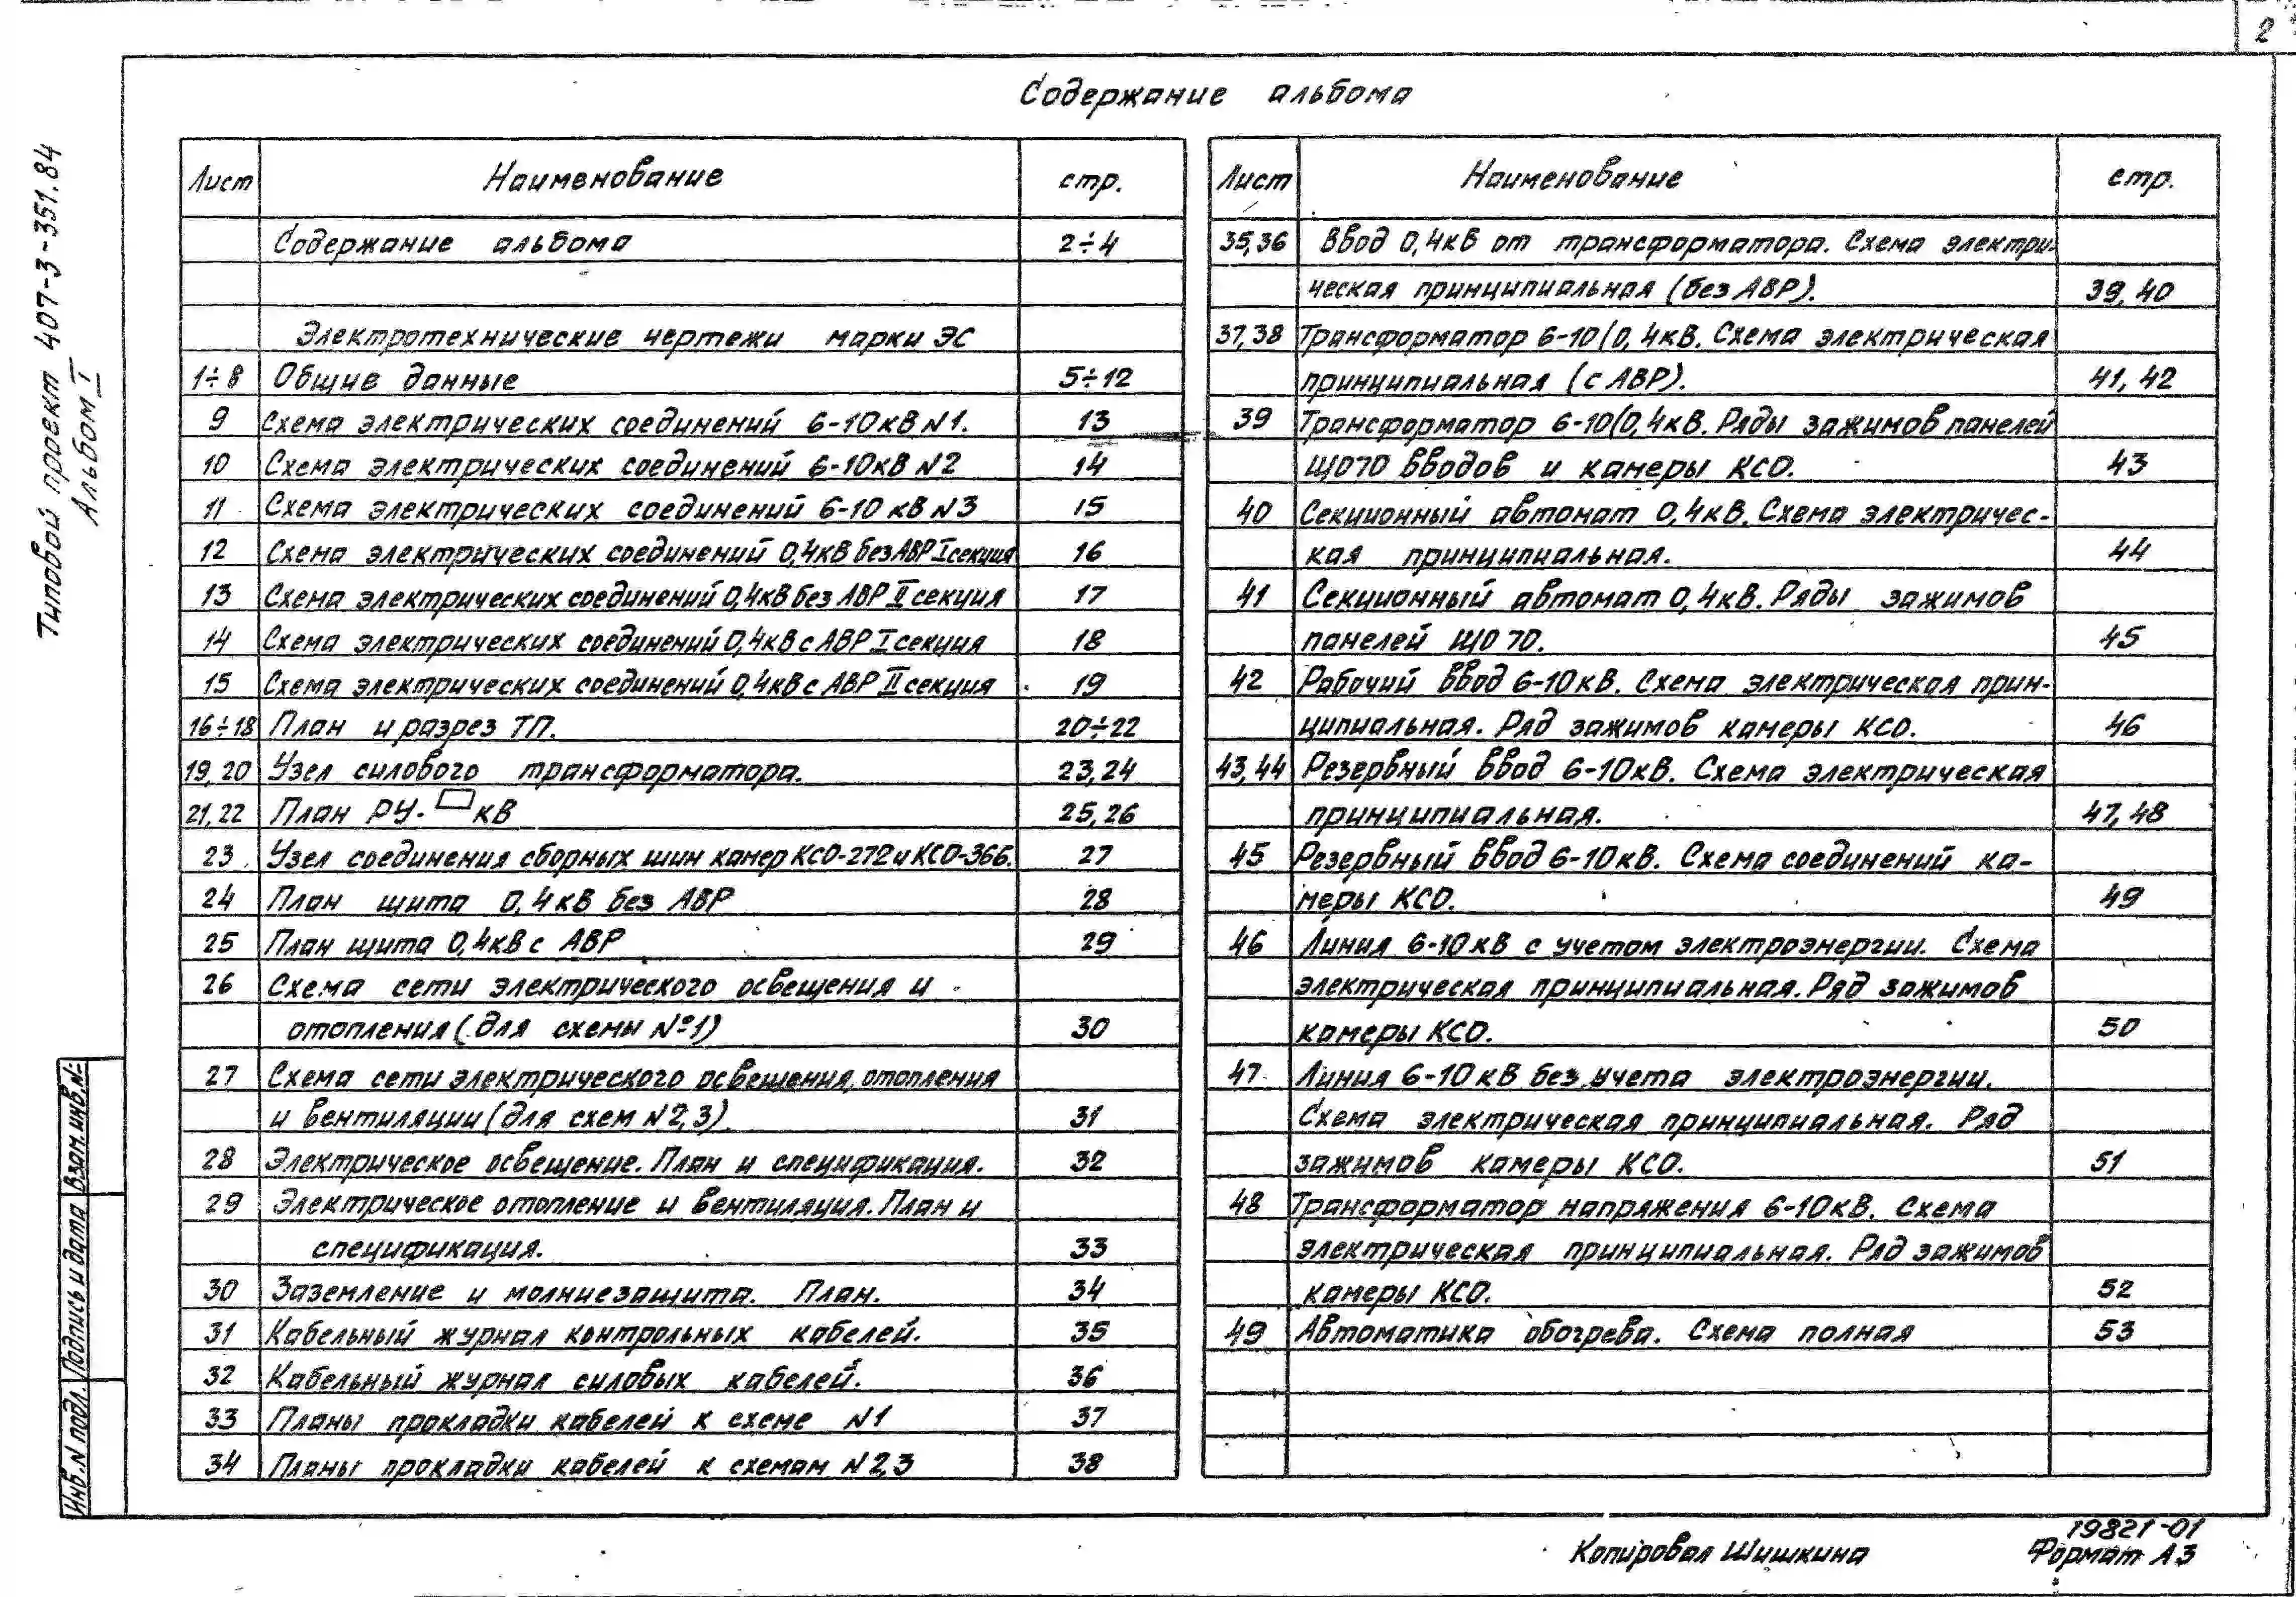 2
Содержание альбома
Типовой проект 407-3-351.84
Альбом I
Лист Наименование стр.
Содержание альбома 2÷4
Электротехнические чертежи марки ЭС
1÷8 Общие данные 5÷12
9 Схема электрических соединений 6-10кВ N1. 13
10 Схема электрических соединений 6-10кВ N2 14
11 Схема электрических соединений 6-10кВ N3 15
12 Схема электрических соединений 0,4кВ без АВР I секция 16
13 Схема электрических соединений 0,4кВ без АВР II секция 17
14 Схема электрических соединений 0,4кВ с АВР I секция 18
15 Схема электрических соединений 0,4кВ с АВР II секция 19
16÷18 План и разрез ТП. 20÷22
19,20 Узел силового трансформатора. 23,24
21,22 План РУ-▭кВ 25,26
23 Узел соединения сборных шин камер КСО-272 и КСО-366. 27
24 План щита 0,4кВ без АВР 28
25 План щита 0,4кВ с АВР 29
26 Схема сети электрического освещения и
отопления (для схемы №1) 30
27 Схема сети электрического освещения, отопления
и вентиляции (для схем N2,3). 31
28 Электрическое освещение. План и спецификация. 32
29 Электрическое отопление и вентиляция. План и
спецификация. 33
30 Заземление и молниезащита. План. 34
31 Кабельный журнал контрольных кабелей. 35
32 Кабельный журнал силовых кабелей. 36
33 Планы прокладки кабелей к схеме N1 37
34 Планы прокладки кабелей к схемам N2,3 38
Лист Наименование стр.
35,36 Ввод 0,4кВ от трансформатора. Схема электри-
ческая принципиальная (без АВР). 39, 40
37,38 Трансформатор 6-10/0,4кВ. Схема электрическая
принципиальная (с АВР). 41, 42
39 Трансформатор 6-10/0,4кВ. Ряды зажимов панелей
ЩО70 вводов и камеры КСО. 43
40 Секционный автомат 0,4кВ. Схема электричес-
кая принципиальная. 44
41 Секционный автомат 0,4кВ. Ряды зажимов
панелей ЩО 70. 45
42 Рабочий ввод 6-10кВ. Схема электрическая прин-
ципиальная. Ряд зажимов камеры КСО. 46
43,44 Резервный ввод 6-10кВ. Схема электрическая
принципиальная. 47, 48
45 Резервный ввод 6-10кВ. Схема соединений ка-
меры КСО. 49
46 Линия 6-10кВ с учетом электроэнергии. Схема
электрическая принципиальная. Ряд зажимов
камеры КСО. 50
47 Линия 6-10кВ без учета электроэнергии.
Схема электрическая принципиальная. Ряд
зажимов камеры КСО. 51
48 Трансформатор напряжения 6-10кВ. Схема
электрическая принципиальная. Ряд зажимов
камеры КСО. 52
49 Автоматика обогрева. Схема полная 53
Инв.N подл. Подпись и дата Взам.инв.№
19821-01
Копировал Шишкина Формат А3